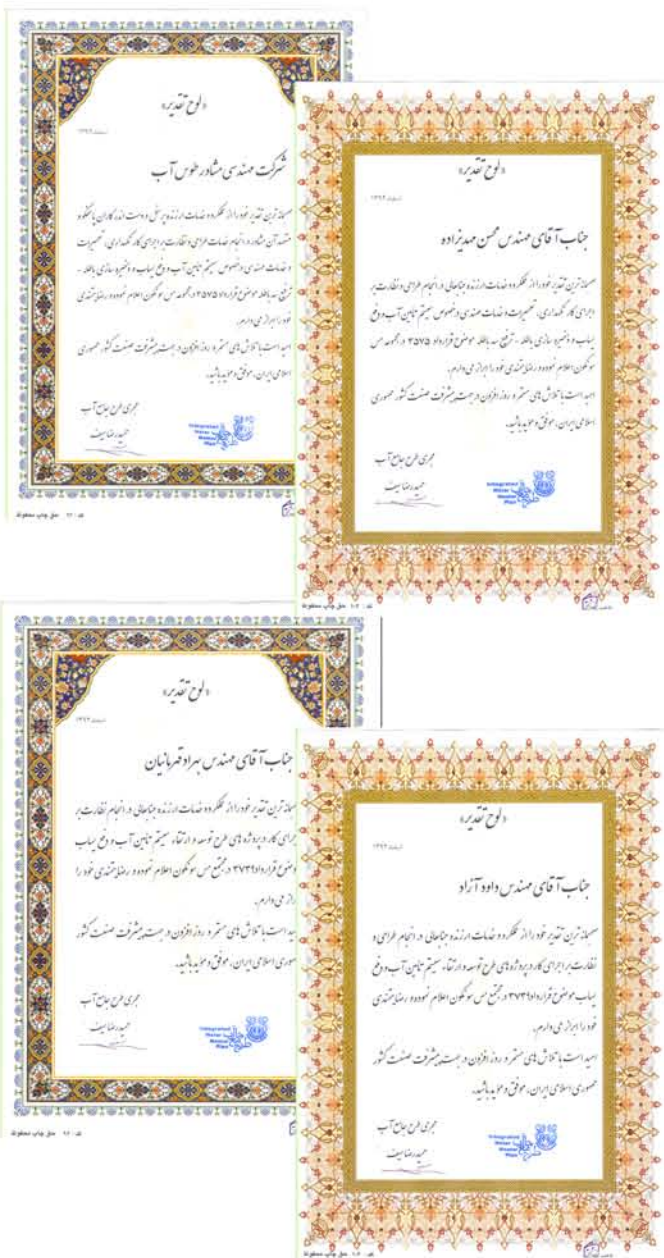 «لوح تقدیر»
اسفند ۱۳۹۲
شرکت مهندسی مشاور طوس آب
صمیمانه ترین تقدیر خود را از عملکرد و خدمات ارزنده پرسنل و دست اندرکاران پاسخگو و
متعهد آن مشاور در انجام خدمات طراحی و نظارت بر اجرای کار نگهداری، تعمیرات
و خدمات مهندسی درخصوص سیستم تامین آب و دفع پساب و ذخیره سازی باطله -
ترفیع سد باطله موضوع قرارداد ۳۵۷۵ در مجموعه مس سونگون اعلام نموده و رضایتمندی
خود را ابراز می دارم.
امید است با تلاش های مستمر و روز افزون در جهت پیشرفت صنعت کشور جمهوری
اسلامی ایران، موفق و موید باشید.
مجری طرح جامع آب
حمیدرضا سیف
Integrated
Water
Master
Plan
طرح جامع آب
کد : ۹۲ حق چاپ محفوظ
«لوح تقدیر»
اسفند ۱۳۹۲
جناب آقای مهندس محسن مهدیزاده
صمیمانه ترین تقدیر خود را از عملکرد و خدمات ارزنده جنابعالی در انجام طراحی و نظارت بر
اجرای کار نگهداری، تعمیرات و خدمات مهندسی درخصوص سیستم تامین آب و دفع
پساب و ذخیره سازی باطله - ترفیع سد باطله موضوع قرارداد ۳۵۷۵ در مجموعه مس
سونگون اعلام نموده و رضایتمندی خود را ابراز می دارم.
امید است با تلاش های مستمر و روز افزون در جهت پیشرفت صنعت کشور جمهوری
اسلامی ایران، موفق و موید باشید.
مجری طرح جامع آب
حمیدرضا سیف
Integrated
Water
Master
Plan
طرح جامع آب
کد : ۱۰۲ حق چاپ محفوظ
«لوح تقدیر»
اسفند ۱۳۹۲
جناب آقای مهندس بهراد قهرمانیان
صمیمانه ترین تقدیر خود را از عملکرد و خدمات ارزنده جنابعالی در انجام نظارت بر
اجرای کار در پروژه های طرح توسعه و ارتقاء سیستم تامین آب و دفع پساب
موضوع قرارداد ۳۷۳۹ در مجتمع مس سونگون اعلام نموده و رضایتمندی خود را
ابراز می دارم.
امید است با تلاش های مستمر و روز افزون در جهت پیشرفت صنعت کشور
جمهوری اسلامی ایران، موفق و موید باشید.
مجری طرح جامع آب
حمیدرضا سیف
Integrated
Water
Master
Plan
طرح جامع آب
کد : ۹۶ حق چاپ محفوظ
«لوح تقدیر»
اسفند ۱۳۹۲
جناب آقای مهندس داود آزاد
صمیمانه ترین تقدیر خود را از عملکرد و خدمات ارزنده جنابعالی در انجام طراحی و
نظارت بر اجرای کار در پروژه های طرح توسعه و ارتقاء سیستم تامین آب و دفع
پساب موضوع قرارداد ۳۷۳۹ در مجتمع مس سونگون اعلام نموده و رضایتمندی
خود را ابراز می دارم.
امید است با تلاش های مستمر و روز افزون در جهت پیشرفت صنعت کشور
جمهوری اسلامی ایران، موفق و موید باشید.
مجری طرح جامع آب
حمیدرضا سیف
Integrated
Water
Master
Plan
طرح جامع آب
کد : ۱۰۲ حق چاپ محفوظ